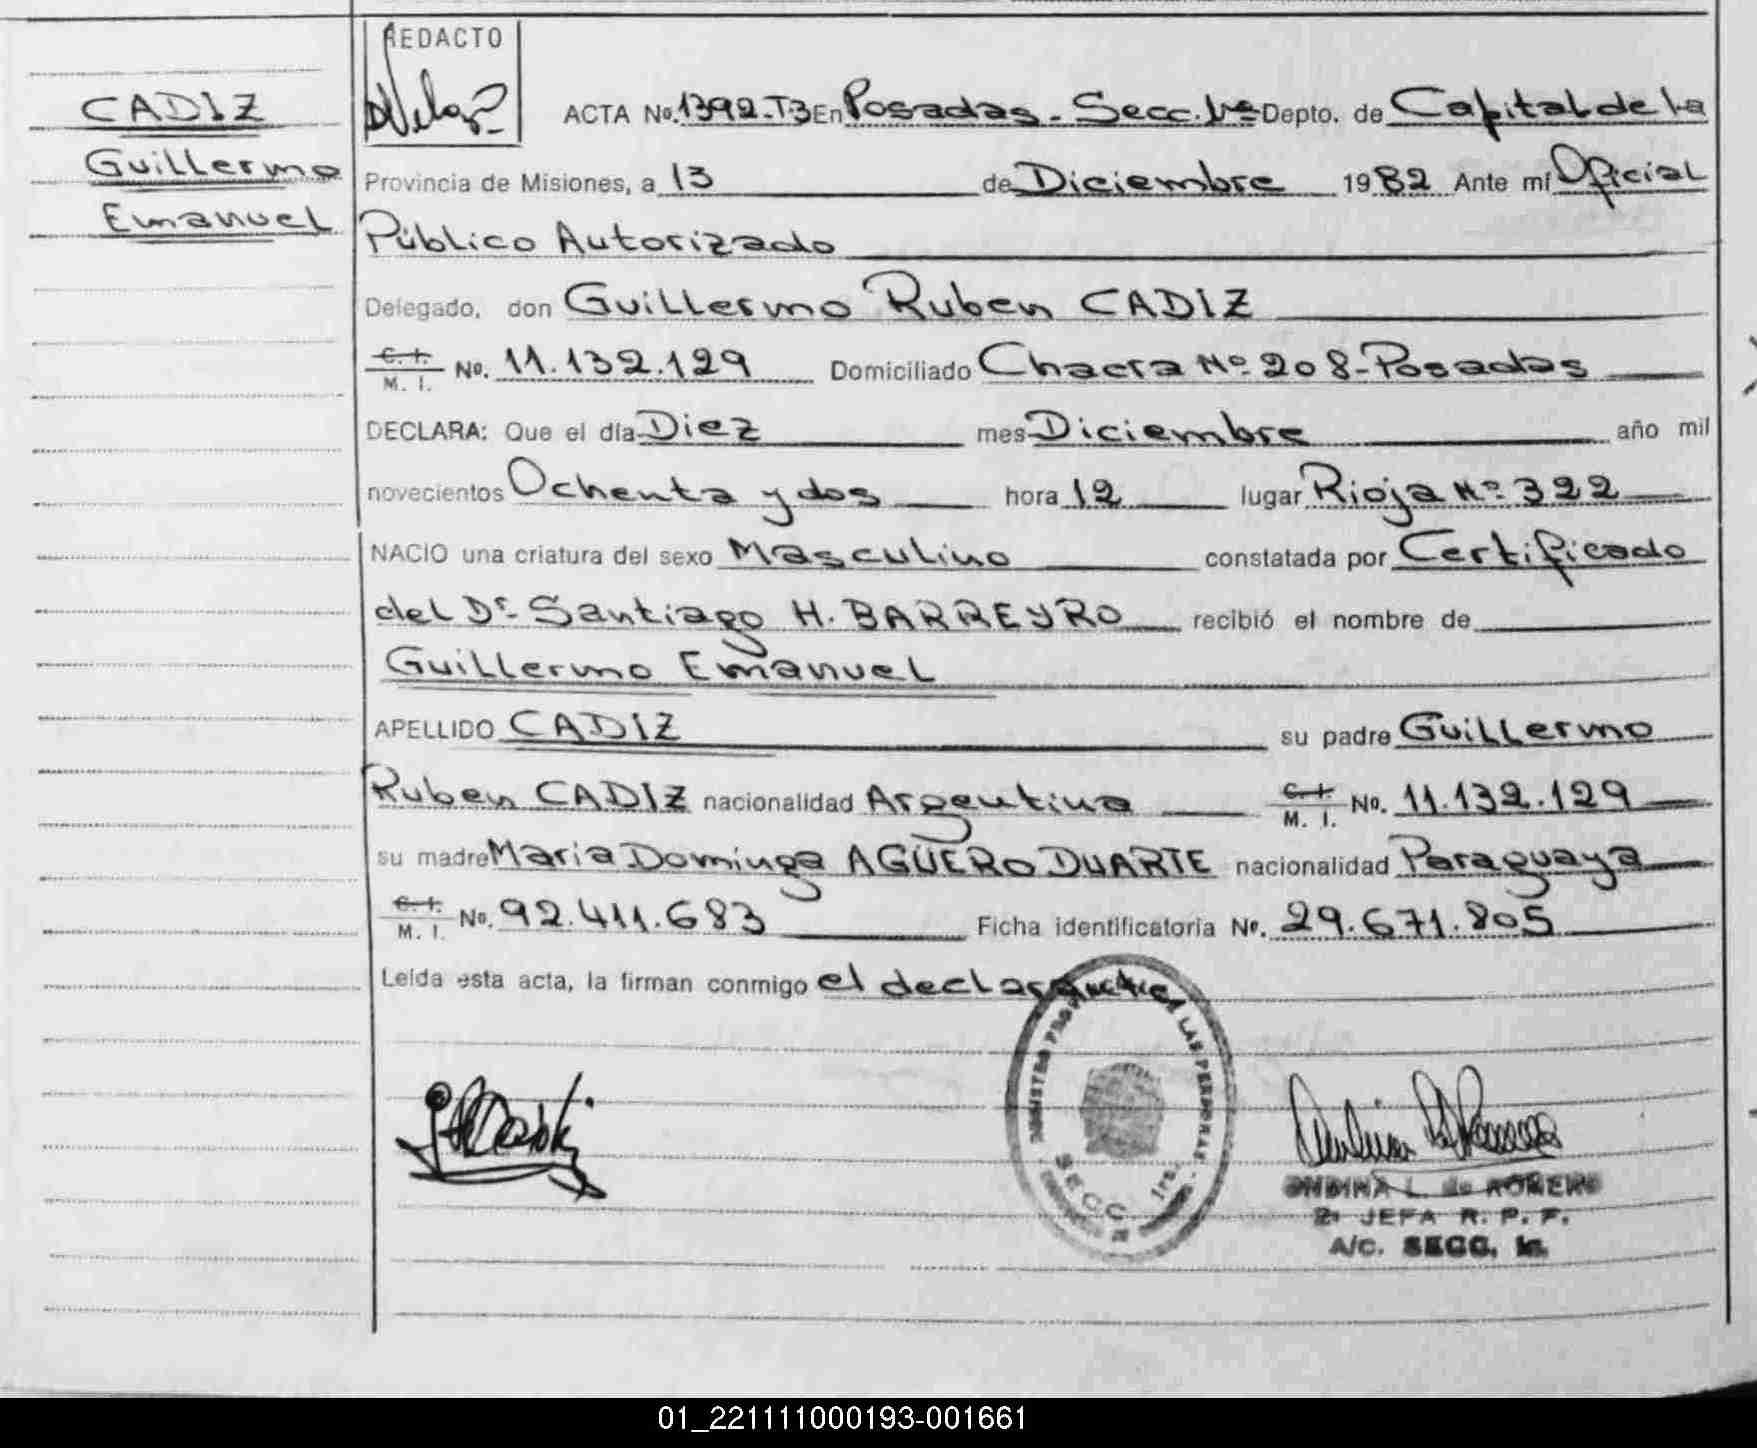 CADIZ
Guillermo
Emanuel
REDACTO
ACTA No. 1392-T3 En Posadas - Secc. 1ra Depto. de Capital de la
Provincia de Misiones, a 13 de Diciembre 1982 Ante mí Oficial
Público Autorizado
Delegado, don Guillermo Ruben CADIZ
C. I. M. I. No. 11.132.129 Domiciliado Chacra Nº 208-Posadas
DECLARA: Que el día Diez mes Diciembre año mil
novecientos Ochenta y dos hora 12 lugar Rioja Nº 322
NACIO una criatura del sexo Masculino constatada por Certificado
del Dr. Santiago H. BARREYRO recibió el nombre de
Guillermo Emanuel
APELLIDO CADIZ su padre Guillermo
Ruben CADIZ nacionalidad Argentina C. I. M. I. No. 11.132.129
su madre Maria Dominga AGÜERO DUARTE nacionalidad Paraguaya
C. I. M. I. No. 92.411.683 Ficha identificatoria No. 29.671.805
Leída esta acta, la firman conmigo el declarante
LAS PERSONAS
SECC. 1ra.
ONDINA L. de ROMERO
2º JEFA R. P. P.
A/C. SECC. 1a.
01_221111000193-001661